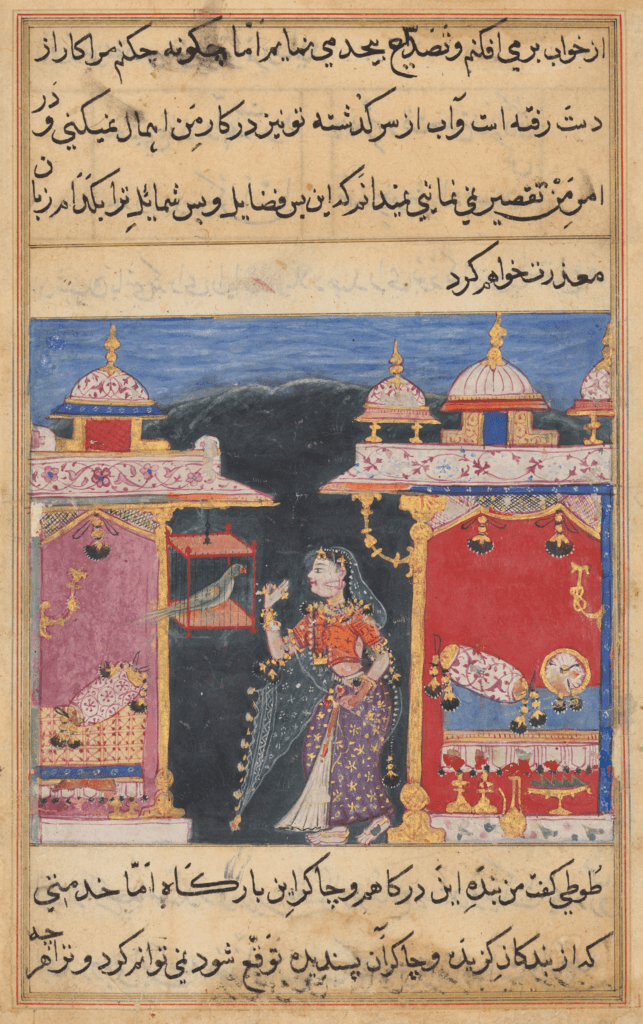 از خواب برمی افکنم و تصدیع بیحد می نمایم امّا چکونه چکنم مرا کار از
دست رفته است و آب از سر کذشته تو نیز در کار من اهمال نمیکنی و در
امر من تقصیر نمی نمایی نمیدانم که این بس فضایل و بس شمائل ترا بکدام زبان
معذرت خواهم کرد
طوطی کفت من بندۀ این درکاهم و چاکر این بارکاه امّا خدمتی
که از بندکان کزیده و چاکران پسندیده توقّع شود نمی توانم کرد و ترا هرچه